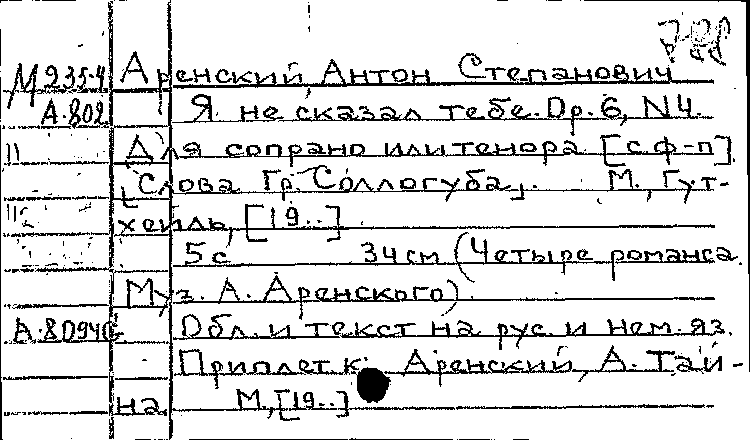 М235-4 Аренский, Антон Степанович
А.802 Я не сказал тебе. Op. 6, N4.
Для сопрано или тенора [с ф-п]
Слова Гр. Соллогуба. М., Гут-
хейль, [19..]
5 с 34 см (Четыре романса
Муз. А. Аренского)
Обл. и текст на рус. и нем. яз.
Приплет. к: Аренский, А. Тай-
на М., [19..]